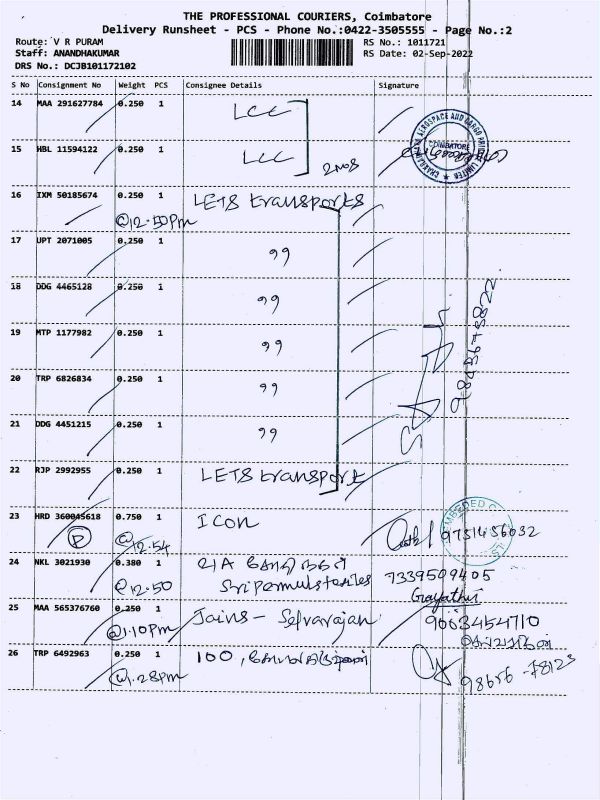 THE PROFESSIONAL COURIERS, Coimbatore
Delivery Runsheet - PCS - Phone No.:0422-3505555 - Page No.:2
Route: V R PURAM RS No.: 1011721
Staff: ANANDHAKUMAR RS Date: 02-Sep-2022
DRS No.: DCJB101172102
S No Consignment No Weight PCS Consignee Details Signature
14 MAA 291627784 0.250 1 LCC
15 HBL 11594122 0.250 1 LCC
2 Nos
COIMBATORE
16 IXM 50185674 0.250 1 LETS transports
@12.50pm
17 UPT 2071005 0.250 1 99
18 DDG 4465128 0.250 1 99
19 MTP 1177982 0.250 1 99
20 TRP 6826834 0.250 1 99
21 DDG 4451215 0.250 1 99
22 RJP 2992955 0.250 1 LETS transport
23 HRD 360045618 0.750 1 Icon
P @12.54
24 NKL 3021930 0.380 1
@12.50 7339509405
Gayathri
25 MAA 565376760 0.250 1 Jains - Selvarajan 9003454710
@1.10pm
26 TRP 6492963 0.250 1 100,
@1.28pm 98656 - 78123